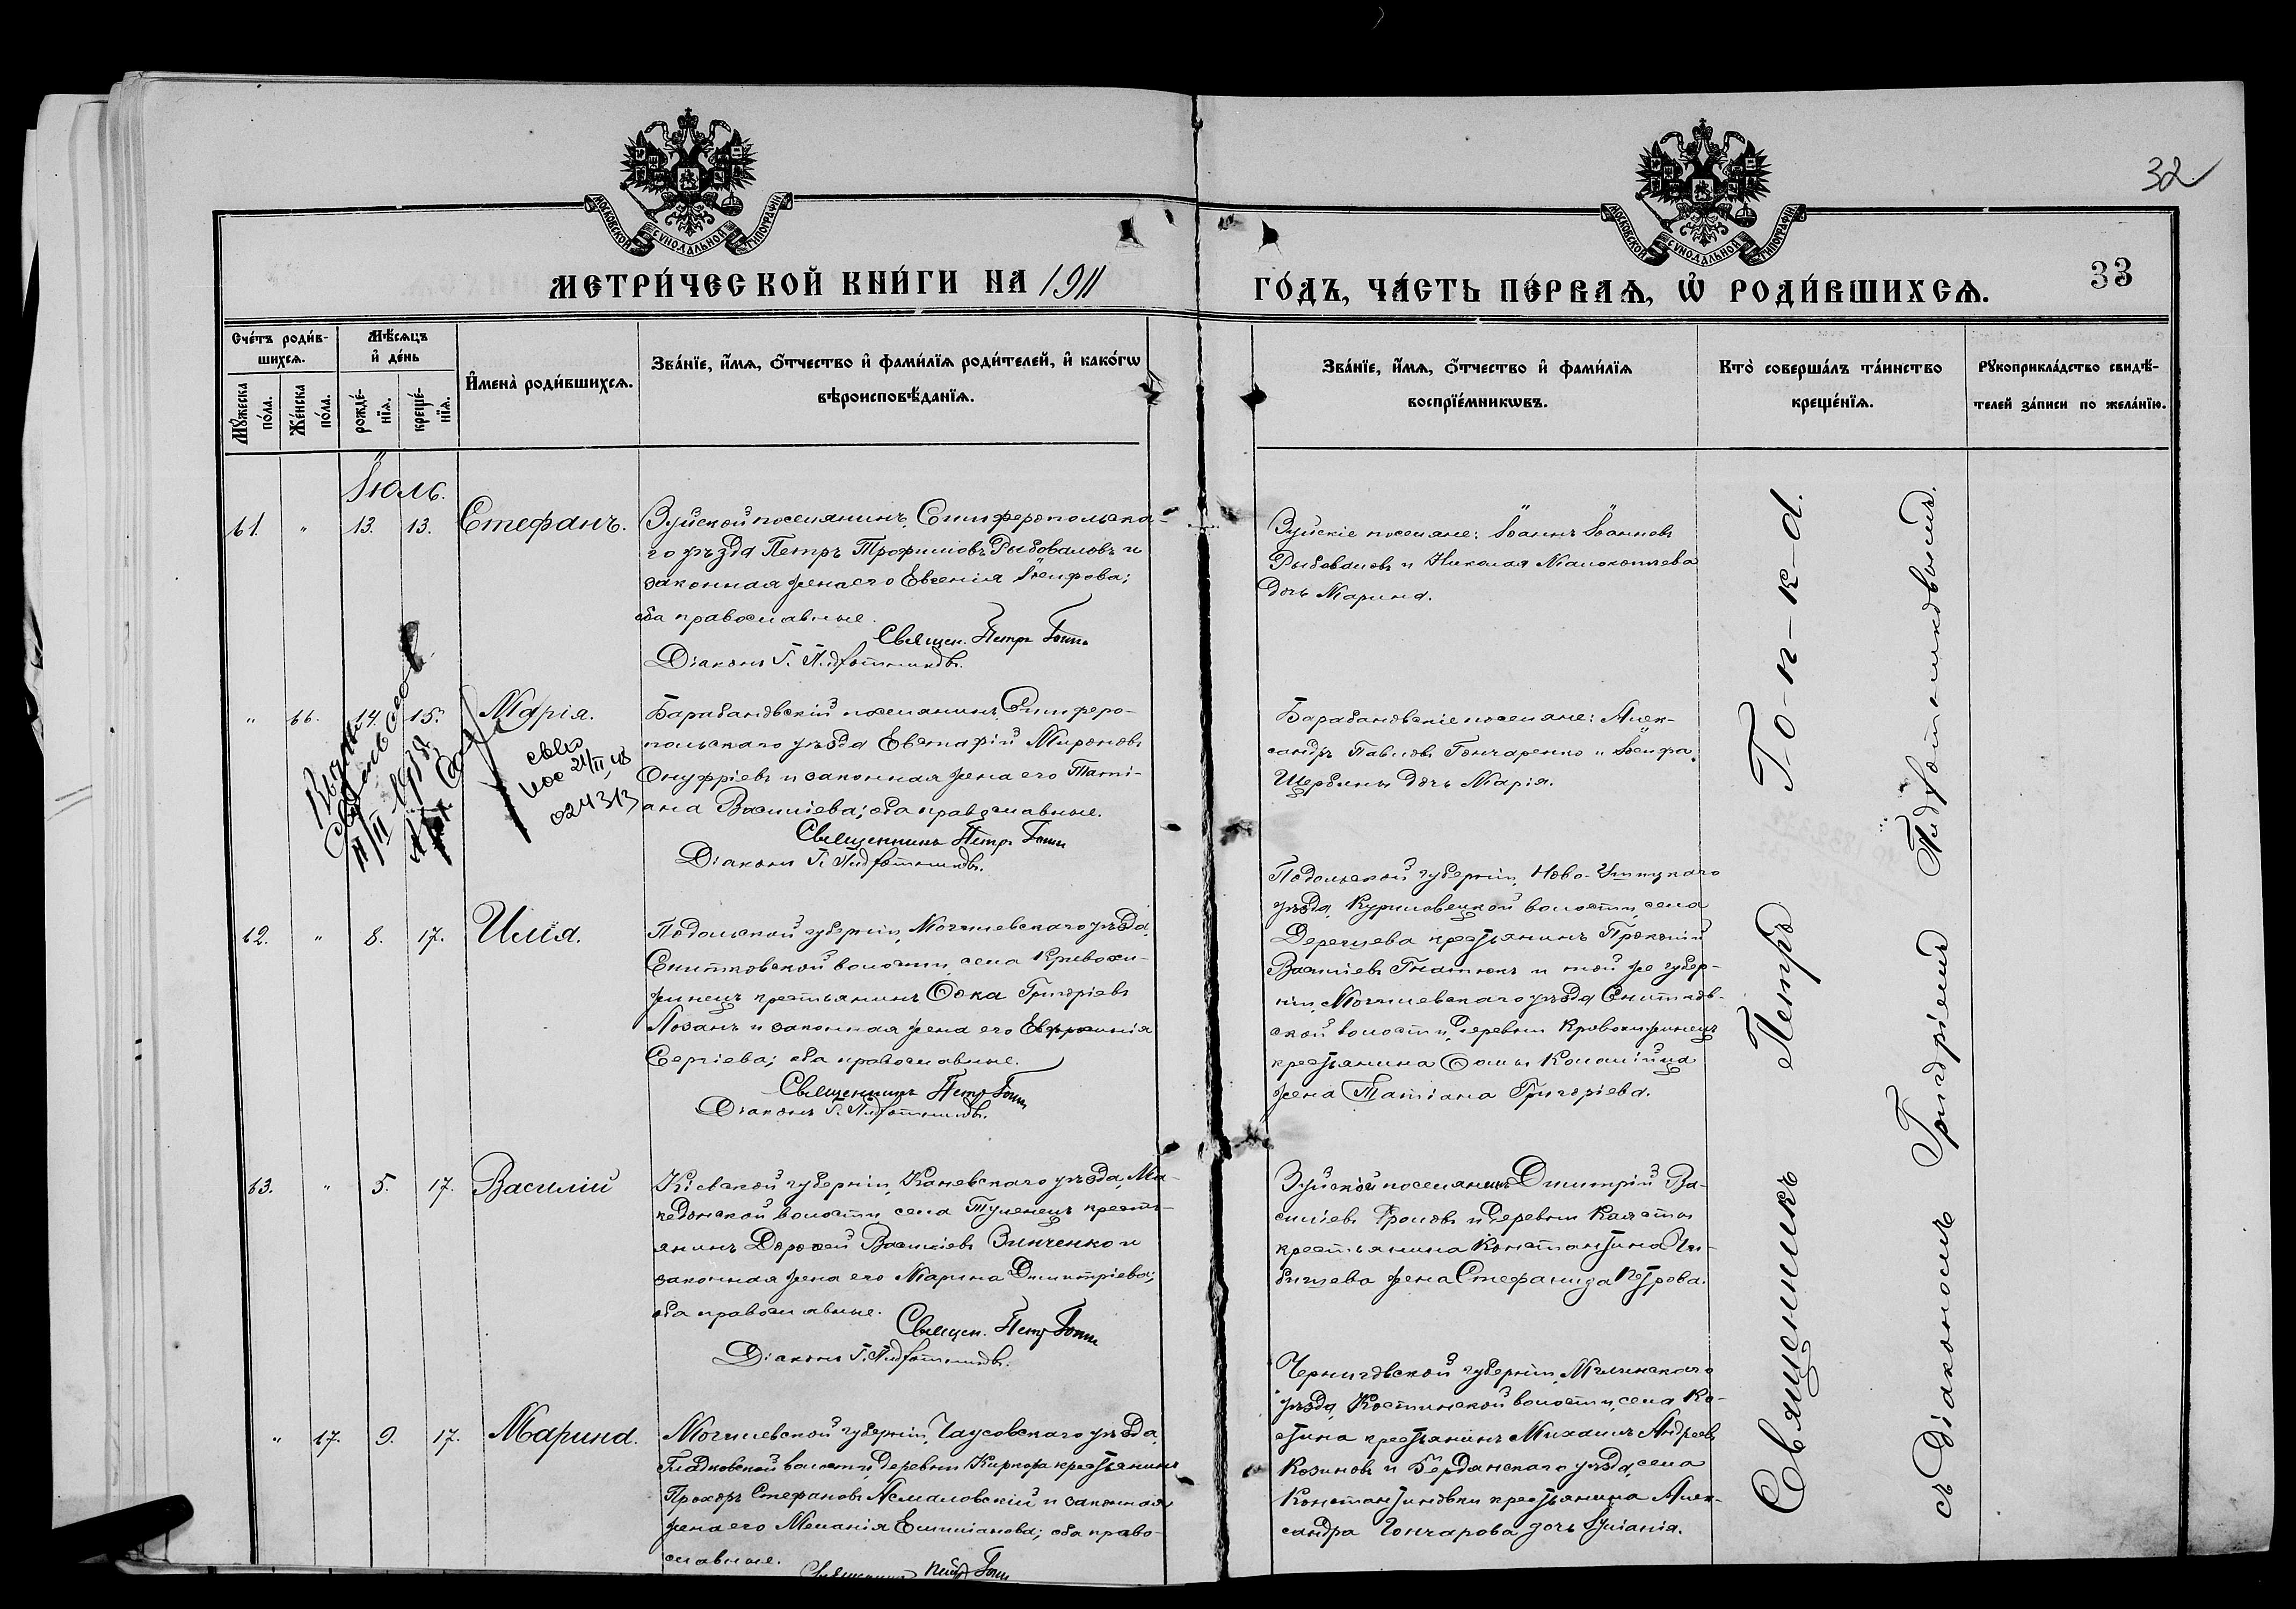 32
МОСКОВСКОЙ СУНОДАЛЬНОЙ ТИПОГРАФІИ
МОСКОВСКОЙ СУНОДАЛЬНОЙ ТИПОГРАФІИ
МЕТРИ́ЧЕСКОЙ КНИ́ГИ НА 1911
ГО́ДЪ, ЧА́СТЬ ПЕ́РВАѦ, Ѡ҆ РОДИ́ВШИХСѦ.
33
Сче́тъ роди́в-
шихсѧ.
Мꙋ́жеска по́ла.
Же́нска по́ла.
Мѣ́сѧцъ
и҆ де́нь
рожде́-
нїѧ.
креще́-
нїѧ.
И҆мена̀ роди́вшихсѧ.
Зва́нїе, и҆́мѧ, ѻ҆́тчество и҆ фами́лїѧ роди́телей, и҆ како́гѡ
вѣроисповѣ́данїѧ.
Зва́нїе, и҆́мѧ, ѻ҆́тчество и҆ фами́лїѧ
воспрїе́мникѡвъ.
Кто̀ соверша́лъ та́инство
креще́нїѧ.
Рꙋкоприкла́дство свидѣ́-
телей за́писи по жела́нїю.
Іюль.
61. " 13. 13. Стефанъ.
Зуйской поселянинъ, Симферопольска-
го уѣзда Петръ Трофимовъ Рыбоваловъ и
законная жена его Евгенія Іосифова;
оба православные.
Священ. Петръ Гопк
Діаконъ Г.
Зуйскіе поселяне: Іоаннъ Іоанновъ
Рыбоваловъ и Николая
дочь Марина.
" 66. 14. 15. Марія.
21/II 48
024313
Барабановскій поселянинъ, Симферо-
польскаго уѣзда Евстафій Мироновъ
Онуфріевъ и законная жена его Таті-
ана Василіева; оба православные.
Священникъ Петръ Гопк
Діаконъ Г.
Барабановскіе поселяне: Алек-
сандръ Павловъ Гончаренко и Іосифа
Щербины дочь Марія.
62. " 8. 17. Илія.
Подольской губерніи, Могилевскаго уѣзда,
Снитковской волости, села Кривохи-
жинецъ крестьянинъ Ѳока Григоріевъ
Лозанъ и законная жена его Евфросинія
Сергіева; оба православные.
Священникъ Петръ Гопк
Діаконъ Г.
Подольской губерніи, Ново-Ушицкаго
уѣзда, Куриловецкой волости, села
крестьянинъ Прокопій
Василіевъ Гнатюкъ и той же губер-
ніи, Могилевскаго уѣзда, Снитков-
ской волости, деревни Кривохижинецъ
крестьянина Ѳомы Коломійца
жена Татіана Григоріева.
63. " 5. 17. Василій
Кіевской губерніи, Каневскаго уѣзда, Ма-
кедонской волости, села Тулинецъ кресть-
янинъ Дорофей Василіевъ Зинченко и
законная жена его Марина Димитріева;
оба православные.
Священ. Петръ Гопк
Діаконъ Г.
Зуйской поселянинъ Димитрій Ва-
силіевъ Фроловъ и деревни
крестьянина Константина
жена Стефанида Петрова.
" 67. 9. 17. Марина.
Могилевской губерніи, Чаусовскаго уѣзда,
волости, деревни крестьянинъ
Прохоръ Стефановъ Асмаловскій и законная
жена его Меланія Емиліанова; оба право-
славные.
Священникъ Петръ Гопк
Черниговской губерніи, Мглинскаго
уѣзда, Костинской волости, села Ко-
стина крестьянинъ Михаилъ Андреевъ
Козиновъ и Бердянскаго уѣзда, села
Константиновки крестьянина Алек-
сандра Гончарова дочь Іуліанія.
Священникъ Петръ Го-п-к-а.
съ Діакономъ Григоріемъ